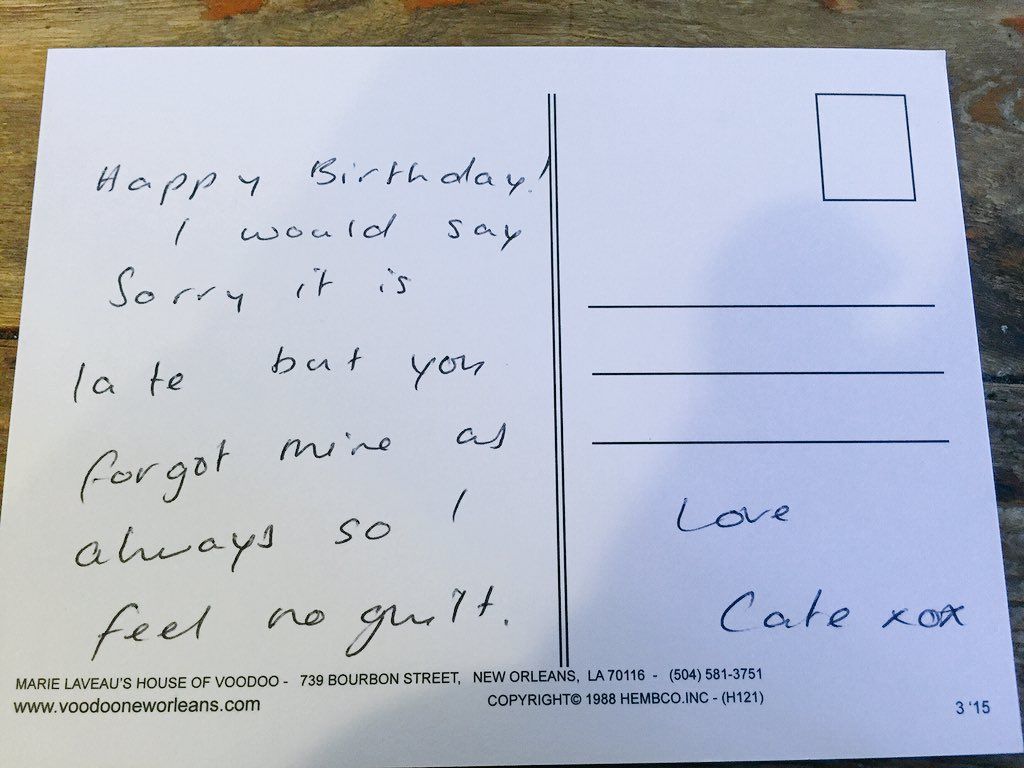 Happy Birthday!
I would say
Sorry it is
late but you
forgot mine as
always so I
feel no guilt.
Love
Cate xox
MARIE LAVEAU'S HOUSE OF VOODOO - 739 BOURBON STREET, NEW ORLEANS, LA 70116 - (504) 581-3751
www.voodooneworleans.com
COPYRIGHT© 1988 HEMBCO.INC - (H121)
3 '15